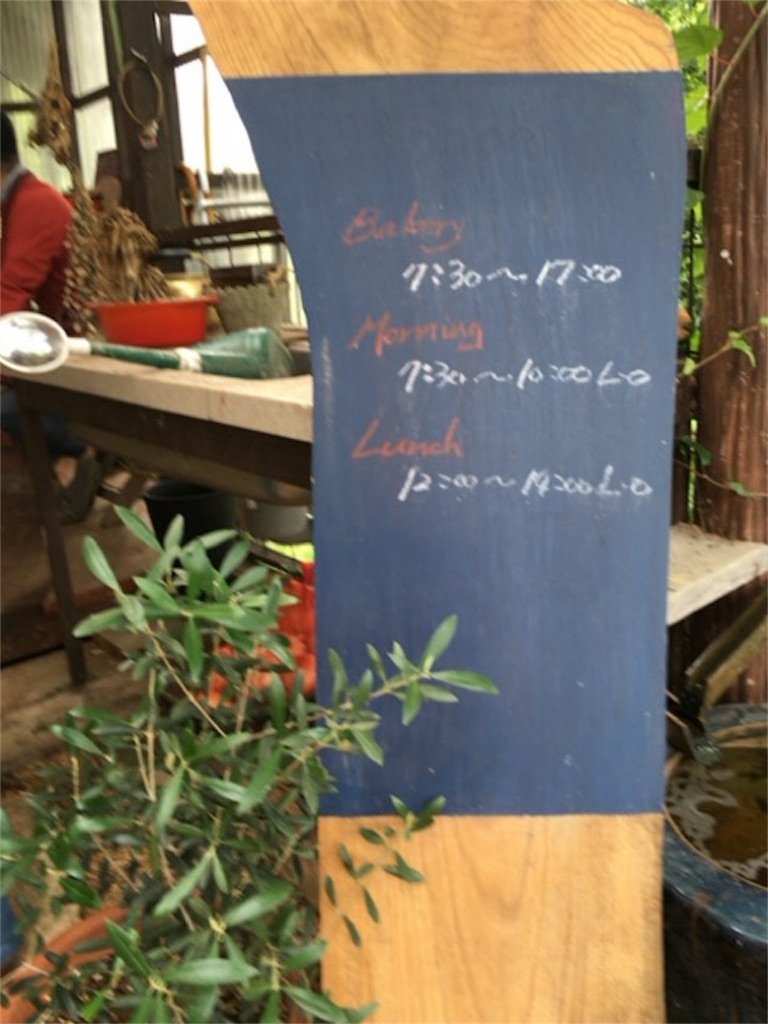 Bakery
7:30〜17:00
Morning
7:30〜10:00 L.O
Lunch
12:00〜14:00 L.O